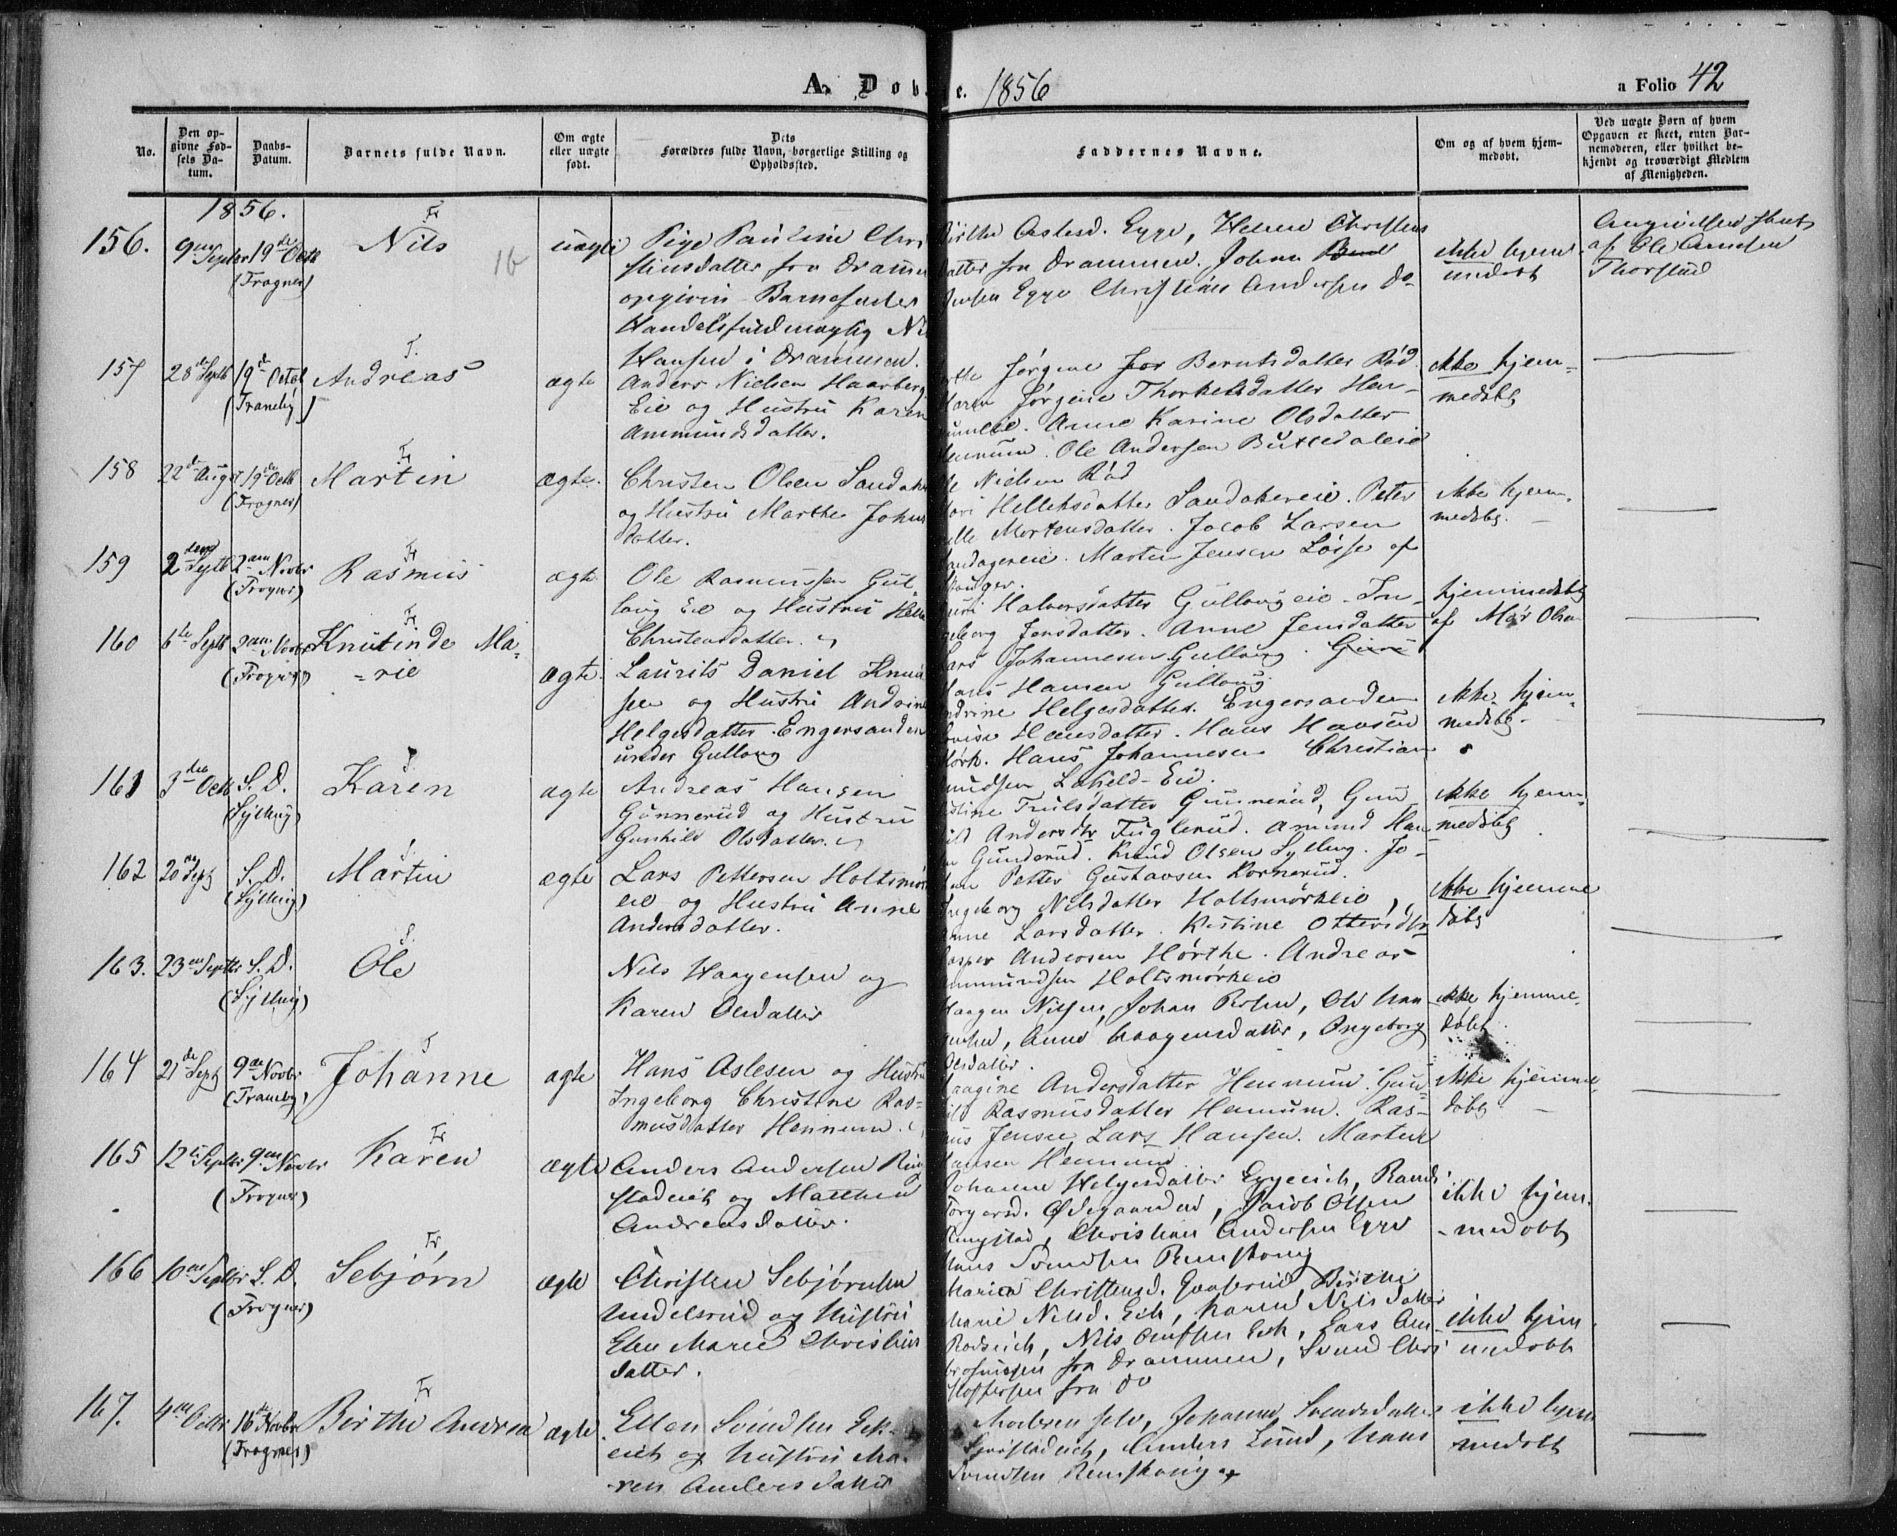 A. Døb e. 1856 a Folio 42
No.
Den op-
givne Fød-
sels Da-
tum.
Daabs-
Datum.
Barnets fulde Navn.
Om ægte
eller uægte
født.
Dets
Forældres fulde Navn, borgerlige Stilling og
Opholdssted.
Faddernes Navne.
Om og af hvem hjem-
medøbt.
Ved uægte Børn af hvem
Opgaven er skeet, enten Bar-
nemoderen, eller hvilket be-
kjendt og troværdigt Medlem
af Menigheden.
1856.
156. 9 Septbr 19de Octb (Frogner) Fr Nils uægte
Pige Pauline Chri
stensdatter fra Dramm
opgiven Barnefader
Handelsfuldmægtig Ni
Hansen i Drammen.
Birthe Aslesd. Egge, Helene Christens
datter fra Drammen. Johan
Jensen Egge Christian Andersen Do-
ikke hjem
medøbt
Angivelsen skeet
af Ole
Thorstud
157 28de Septb 19d Octob (Tranby) T. Andreas ægte
Anders Nielsen Haarberg
Eie og Hustru Karen
Ammundsdatter.
Jørgine Berntsdatter Rød
Maren Jørgine Thorkelsdatter Hen-
numeie. Anne Karine Olsdatter
Hennum. Ole Andersen
Ole Nielsen Rød
ikke hjem-
medøbt
158 22de Augst 19de Octb (Frogner) Fr Martin ægte.
Christen Olsen Sandak
og Hustru Marthe Johns
datter.
Helleksdatter Sandakereie. Peter
Mortensdatter. Jacob Larsen
Sandagereie. Martin Jensen Løsse af
ikke hjem-
medøbt. -
159 2den Septb 2den Novbr (Frogner) Fr Rasmus ægte
Ole Rasmussen Gul-
laug Eie og Hustru Hele
Christensdatter.
Halvorsdatter Gullougeie. In-
geborg Jensdatter. Anne Jensdatter
Lars Johannesen Gulloug.
Hans Hansen Gulloug
hjemmedøbt
af Olsen
160 6te Septb 2den Novbr (Frogner) Fr Knutinde Ma-
=rie ægte.
Laurits Daniel Knud
sen og Hustru Andrine
Helgesdatter. Engersanden
under Gulloug
Andrine Helgesdatter. Engersanden
Lovise Hansdatter. Hans Hansen
Mørk. Hans Johannesen Christian
Knudsen Løkeld-Eie.
ikke hjem-
medøbt.
161 3die Octb S. D. (Sylling) Karen ægte
Andreas Hansen
Gunnerud og Hustru
Gunhild Olsdatter.
Trulsdatter Gunnerud, Gun
hild Andersdtr Fuglerud. Amund Han
sen Gunderud. Knud Olsen Sylling. Jo-
han Petter Gustavsen Kornerud.
ikke hjem-
medøbt
162 20de Septb S. D. (Sylling) Martin ægte
Lars Pettersen Holtsmør
eie og Hustru Anne
Andersdatter.
Ingeborg Nilsdatter Holtsmørkeie,
Anne Larsdatter. Kristine Ottersdtr
Casper Andersen Hørthe. Andreas
Ammundsen Holtsmørkeie
ikke hjemme
døbt
163. 23de Septbr S. D. (Sylling) S. Ole
Nils Haagensen og
Karen Olsdatter
Haagen Nilsen, Johan, Ole Haa
gensen, Anne Haagensdatter, Ingeborg
Olsdatter.
ikke hjemme-
døbt
164 21de Septb 9de Novbr (Tranby) T Johanne ægte
Hans Aslesen og Hustru
Ingeborg Christine Ras-
musdatter Hennum.
Maagine Andersdatter Hennum. Gun
hild Rasmusdatter Hennum. Ras-
mus Jensen, Lars Hansen. Martin
Hansen Hennum
ikke hjemme-
døbt.
165 12te Septbr 9de Novbr (Frogner) Fr Karen ægte
Anders Andersen Ring
stadeie og Matthea
Andreasdatter.
Johanne Helgesdatter Eggeeie, Randi
Torgersd. Ødegaarden, Jacob Olsen
Ringstad, Christian Andersen Egge
Hans Svendsen Renskoug
ikke hjem-
-medøbt
166 10de Septbr S. D. (Frogner) Fr Sebjørn ægte
Christen Sebjørnsen
Undelsrud og Hustru
Elen Marie Christens
datter.
Maria Christensd. Birthe
Marie Nilsd. Eik, Karen Nilsdatter
Nils Eik, Lars Am
brosiussen fra Drammen, Svend Chri
stoffersen fra do
ikke hjem
medøbt
167. 4de Octbr 16de Novbr (Frogner) Fr Birthe Andrea ægte.
Ellen Svendsen Eik-
eie og Hustru Ma-
ren Andersdatter
Moderen selv, Johanne Svendsdatter
Anders Lund, Hans
Svendsen Renskoug
ikke hjem
medøbt